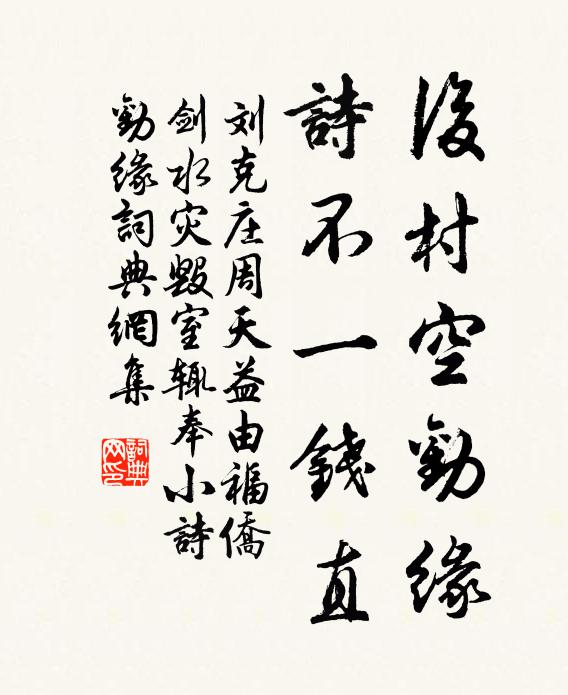 後村空勸緣
詩不一錢直
刘克庄周天益由福僑
剑水灾毁室辄奉小詩
勸緣詞典網集
詞典网印